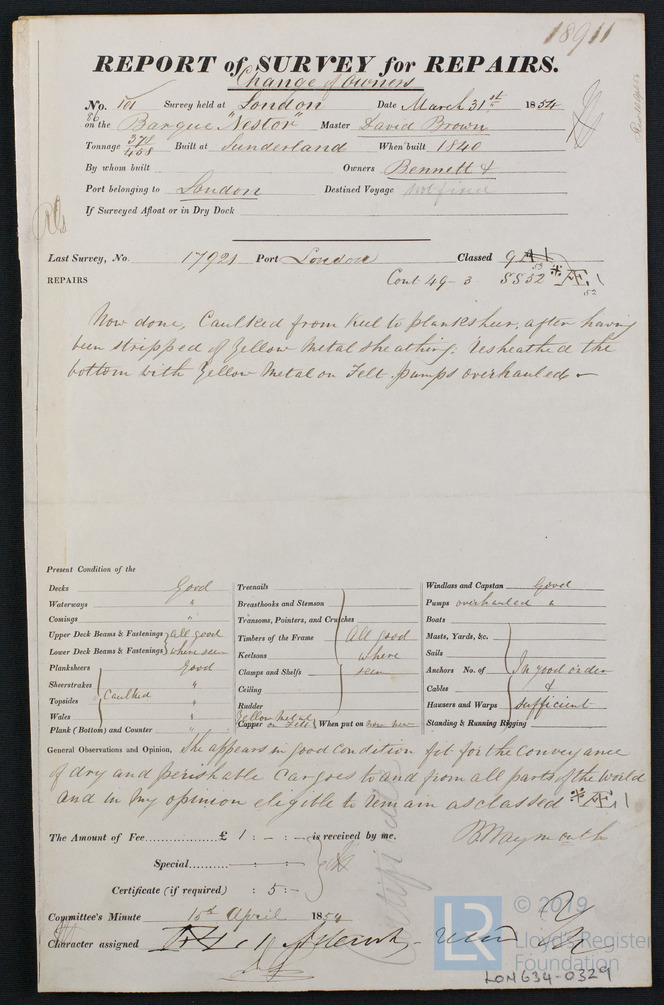 18911
REPORT of SURVEY for REPAIRS.
Change of Owners
No. 101 Survey held at London Date March 31st 1854
86
on the Barque "Nestor" Master David Brown
Tonnage 378 Built at Sunderland When built 1840
By whom built Owners Bennett &
Port belonging to London Destined Voyage Not fixed
If Surveyed Afloat or in Dry Dock
Last Survey, No. 17921 Port London Classed
REPAIRS Cont 49-3
Now done, Caulked from keel to planksheer, after having
been stripped of Yellow Metal sheathing. Resheathed the
bottom with Yellow Metal on Felt. pumps overhauled
Present Condition of the
Decks Good
Waterways "
Comings "
Upper Deck Beams & Fastenings All good
Lower Deck Beams & Fastenings where seen
Planksheers Good
Sheerstrakes "
Topsides Caulked "
Wales "
Plank (Bottom) and Counter "
Treenails
Breasthooks and Stemson
Transoms, Pointers, and Crutches
Timbers of the Frame All good
Keelsons where
Clamps and Shelfs seen
Ceiling
Rudder
Yellow Metal
Copper on Felt When put on now new
Windlass and Capstan Good
Pumps overhauled "
Boats
Masts, Yards, &c.
Sails
Anchors No. of In good order
Cables &
Hausers and Warps sufficient
Standing & Running Rigging
General Observations and Opinion, She appears in good condition fit for the conveyance
of dry and perishable cargoes to and from all parts of the World
and in my opinion eligible to remain as classed * Æ 1
The Amount of Fee £ 1 : - : - is received by me. B Waymouth
Special - : - : -
Certificate (if required) : 5 : -
Committee's Minute 15th April 1854
Character assigned
© 2019
LR
Lloyd's Register
Foundation
LON634-0329